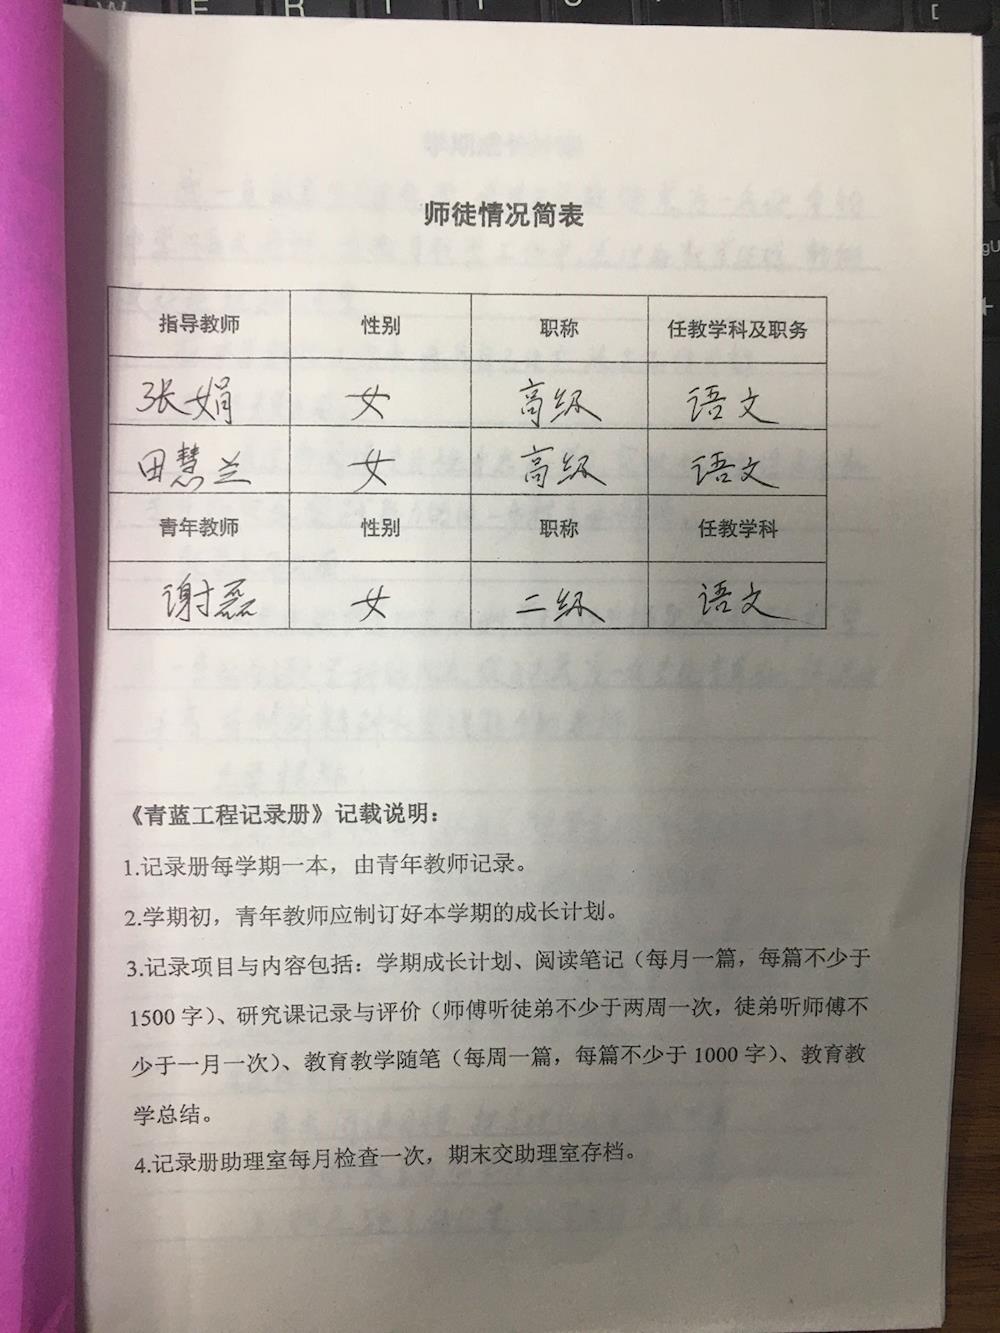 师徒情况简表
指导教师 性别 职称 任教学科及职务
张娟 女 高级 语文
田慧兰 女 高级 语文
青年教师 性别 职称 任教学科
谢磊 女 二级 语文
《青蓝工程记录册》记载说明：
1.记录册每学期一本，由青年教师记录。
2.学期初，青年教师应制订好本学期的成长计划。
3.记录项目与内容包括：学期成长计划、阅读笔记（每月一篇，每篇不少于
1500字）、研究课记录与评价（师傅听徒弟不少于两周一次，徒弟听师傅不
少于一月一次）、教育教学随笔（每周一篇，每篇不少于1000字）、教育教
学总结。
4.记录册助理室每月检查一次，期末交助理室存档。